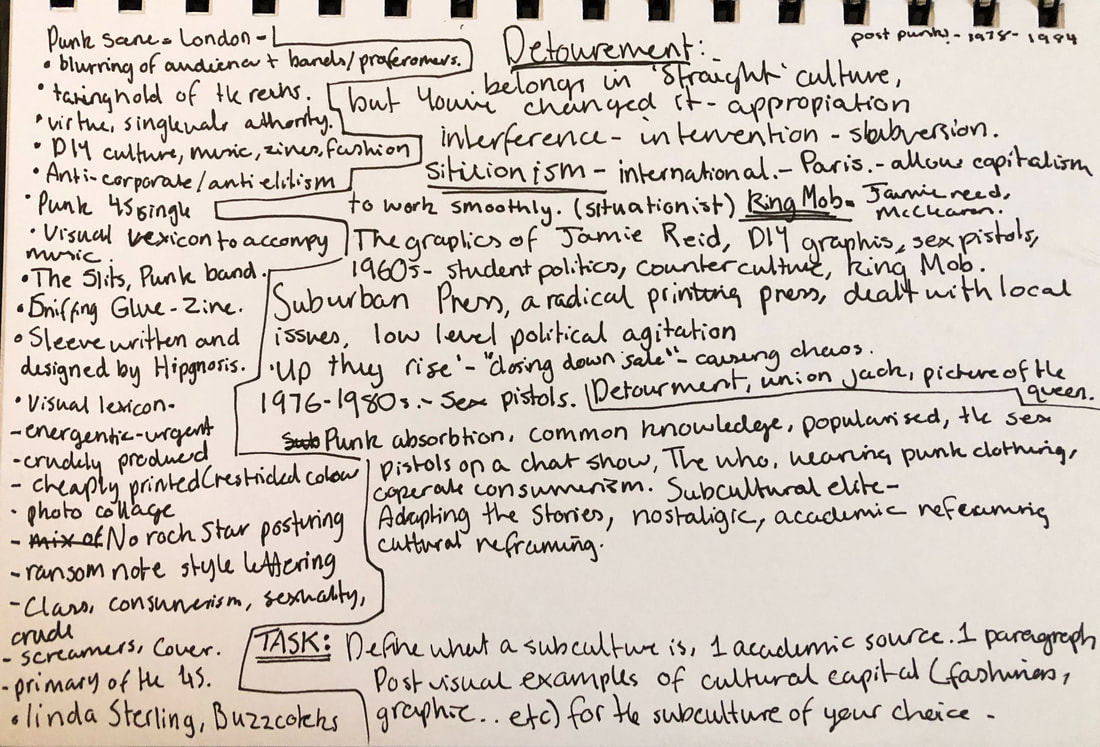 Punk scene = London -
• blurring of audience + bands/preformers.
• taking hold of the reins.
• virtue, authority.
• DIY culture, music, zines, fashion
• Anti-corporate/anti elilism
• Punk 45 single
• Visual lexicon to accompy
music.
• The Slits, Punk band.
• Sniffing Glue - Zine.
• Sleeve written and
designed by Hipgnosis.
• Visual lexicon -
- energentic - urgent
- crudely produced
- cheaply printed (restricted colour
• photo collage
- mix of No rock star posturing
- ransom note style lettering
- Class, consumerism, sexuality,
crude
- screamers, Cover.
- primary of the 45.
• linda Sterling, Buzzcocks
post punk - 1978 - 1984
Detourement:
belongs in 'Straight' culture,
but Youve changed it - appropiation
interference - intervention - subversion.
Sitilionism - international. - Paris. - allow capitalism
to work smoothly. (situationist) King Mob = Jamie reed,
McClaren.
The graplics of Jamie Reid, DIY graphis, sex pistols,
1960s - student politics, counter culture, King Mob.
Suburban Press, a radical printing press, dealt with local
issues, low level political agitation
'Up they rise' - "closing down sale" - causing chaos.
1976-1980s. - Sex pistols. Detourment, union jack, picture of the
queen.
Punk absorbtion, common knowledge, popularised, the sex
pistols on a chat show, The who, wearing punk clothing,
coperate consumerism. Subcultural elite -
Adapting the stories, nostaligic, academic refeamrig
cultural reframing.
TASK: Define what a subculture is, 1 academic source. 1 paragraph
Post visual examples of cultural capital (fashiners,
graphic.. etc) for the subculture of your choice -